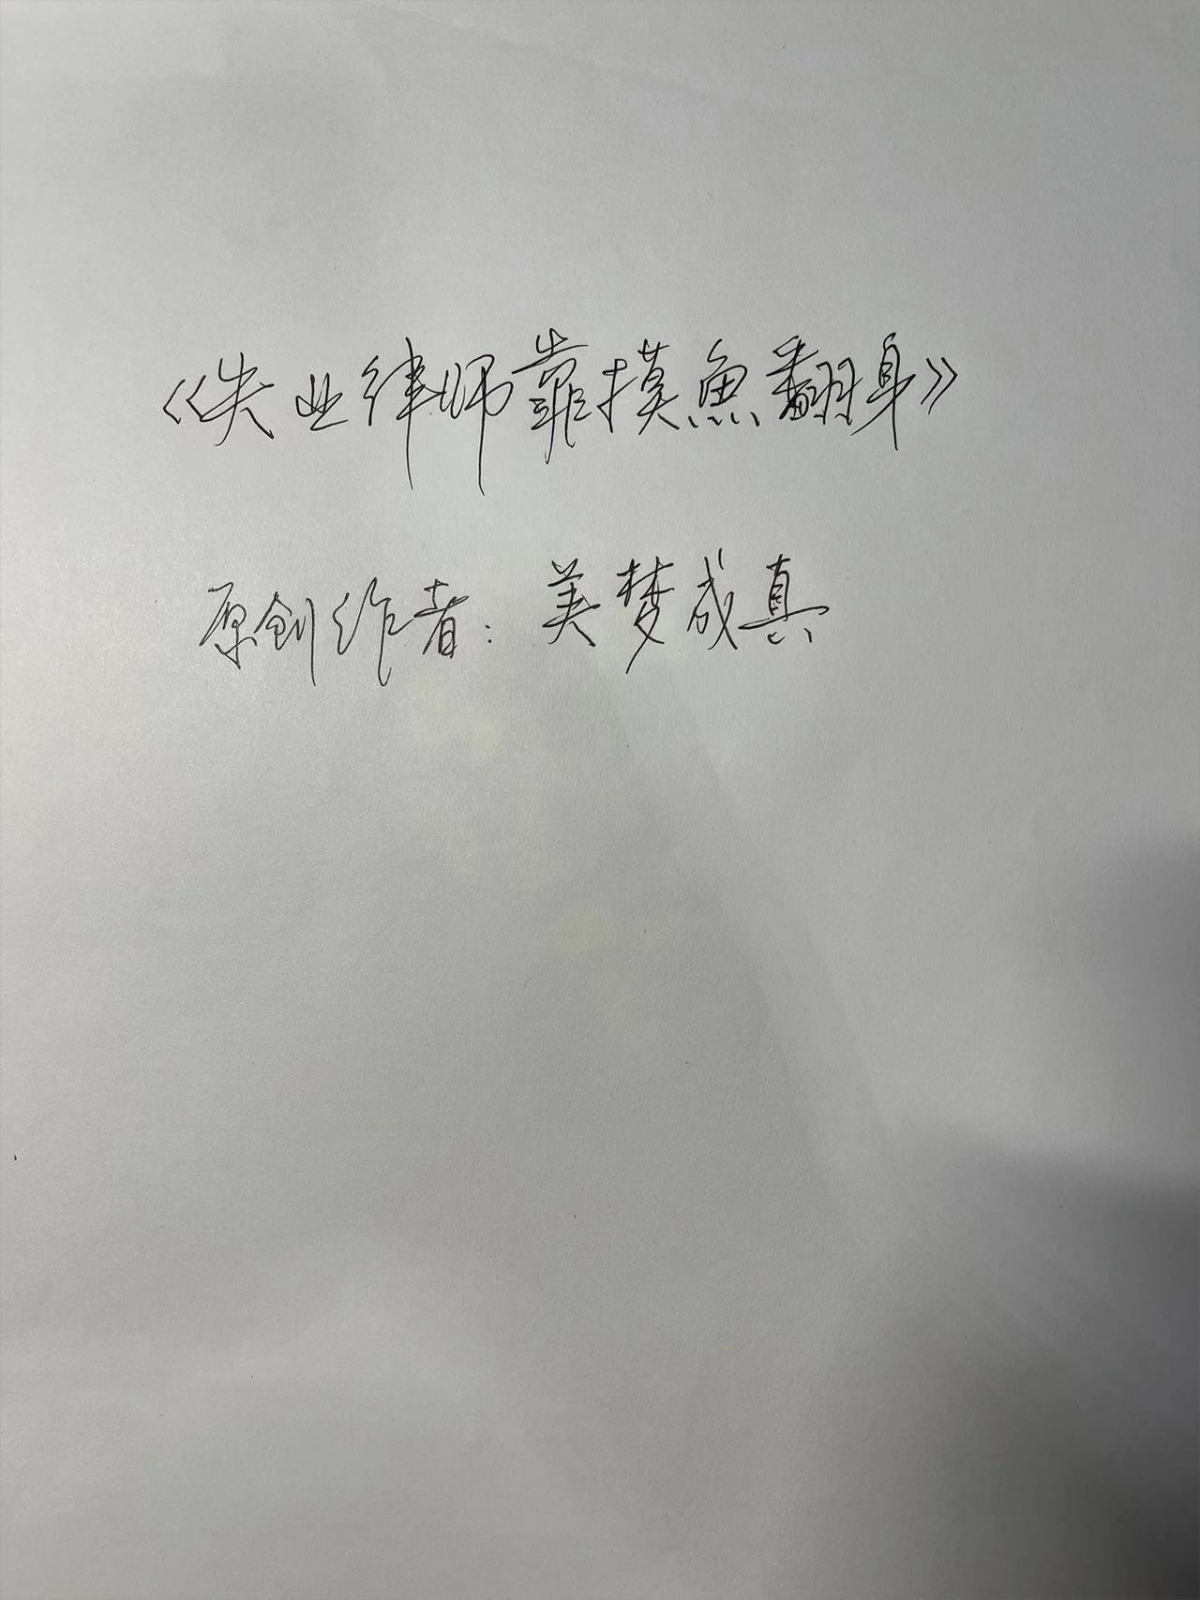 《失业律师靠摸魚翻身》
原创作者：美梦成真